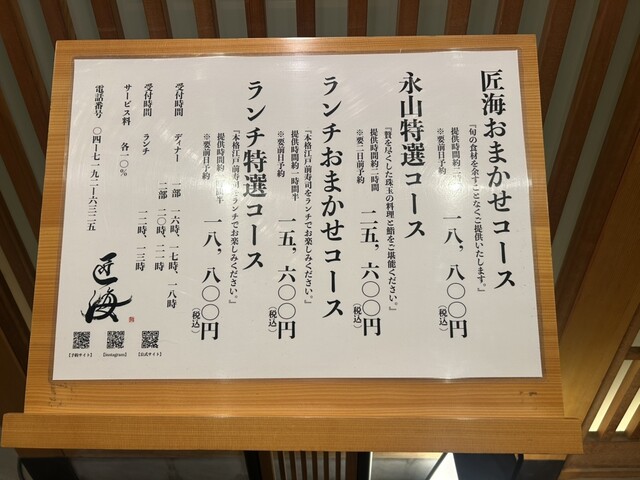 匠海おまかせコース
『旬の食材を余すことなくご提供いたします。』
提供時間約二時間
※要前日予約
一八，八〇〇円
（税込）
永山特選コース
『贅を尽くした珠玉の料理と鮨をご堪能ください。』
提供時間約二時間
※要二日前予約
二五，六〇〇円
（税込）
ランチおまかせコース
『本格江戸前寿司をランチでお楽しみください。』
提供時間約一時間半
※要前日予約
一五，六〇〇円
（税込）
ランチ特選コース
『本格江戸前寿司をランチでお楽しみください。』
※要前日予約
一八，八〇〇円
（税込）
受付時間 ディナー 一部 一六時、一七時、一八時
二部 二〇時、二一時
受付時間 ランチ 一二時、一三時
サービス料 各一〇％
電話番号 〇四-七一九二-六三二五
匠海
【公式サイト】
【Instagram】
【予約サイト】